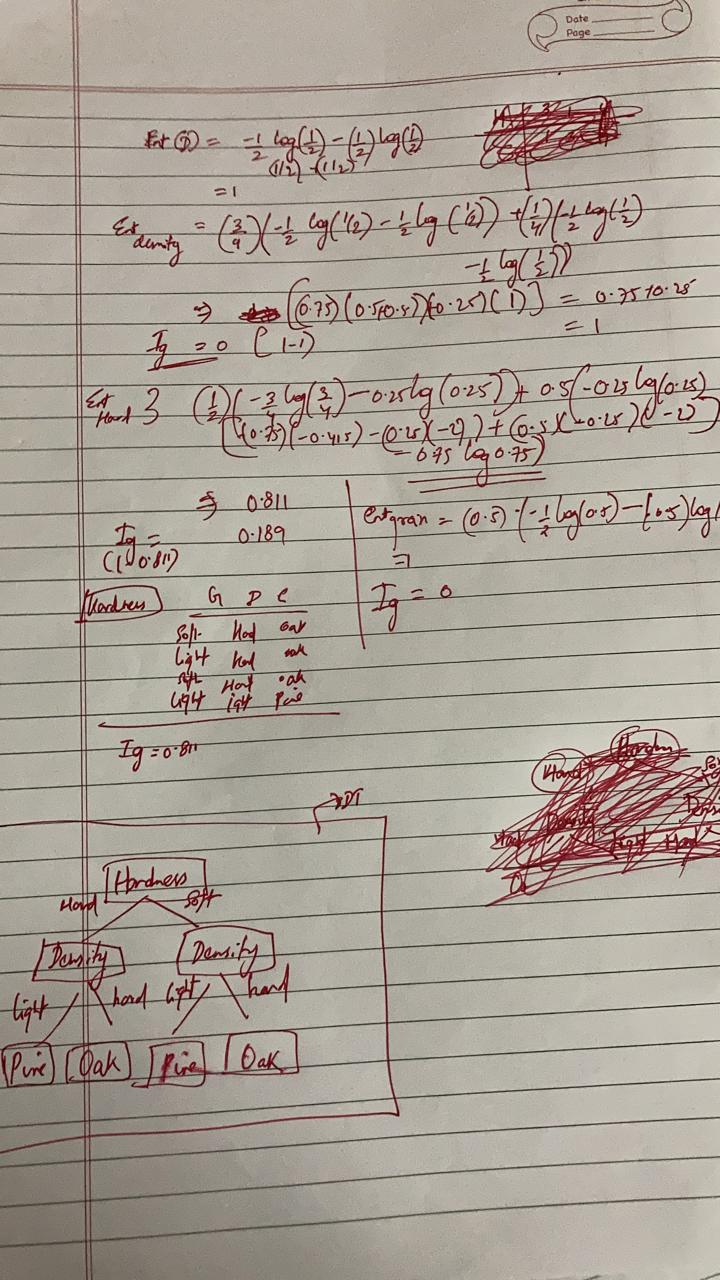 Date
Page
Ent(D) = -1/2 log(1/2) - (1/2) log(1/2)
(1/2) + (1/2)
= 1
Ent density = (3/4)(-1/2 log(1/2) - 1/2 log(1/2)) + (1/4)(-1/2 log(1/2)
-1/2 log(1/2))
⇒ [(0.75)(0.5+0.5)+(0.25)(1)] = 0.75+0.25
= 1
Ig = 0 (1-1)
Ent Hard } (1/2)(-3/4 log(3/4) - 0.25 log(0.25)) + 0.5(-0.25 log(0.25)
(0.75)(-0.415) - (0.25)(-2)) + (0.5)(-0.25)(-2)
- 0.75 log 0.75)
⇒ 0.811
Ig = 0.189
(1-0.811)
Ent gran = (0.5) (-1/2 log(0.5) - (0.5) log(
=1
Ig = 0
Hardness G D C
Soft Hard oak
Light Hard oak
Hard oak
Light light Pine
Ig = 0.811
→DT
Hardness
Hard Soft
Density Density
light hard light hard
Pine Oak Pine Oak